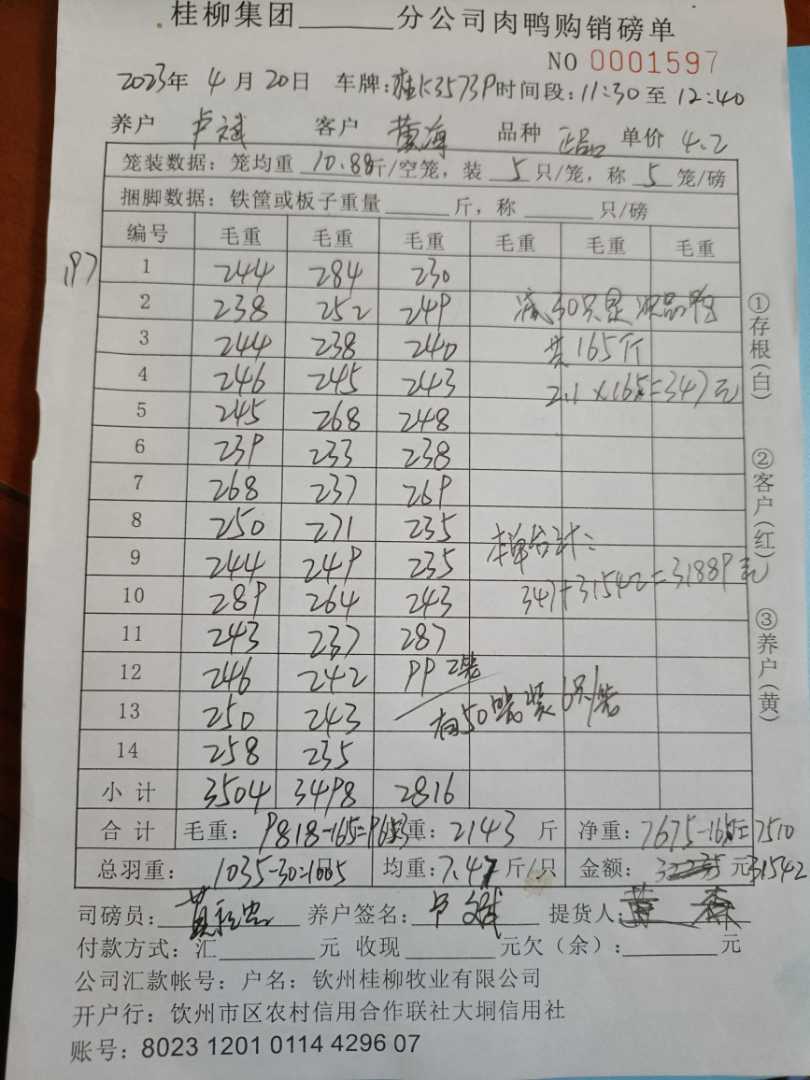 桂柳集团______分公司肉鸭购销磅单
NO 0001597
2023年 4月 20日 车牌:桂K3573P 时间段:11:30 至 12:40
养户 卢斌 客户 黄海 品种 正品 单价 4.2
笼装数据:笼均重 10.88 斤/空笼,装 5 只/笼,称 5 笼/磅
捆脚数据:铁筐或板子重量______斤,称______只/磅
编号 毛重 毛重 毛重 毛重 毛重 毛重
197
1 244 284 230
2 238 252 249 减30只是次品鸭
3 244 238 240 共165斤
4 246 245 243 2.1×165=347元
5 245 268 248
6 239 233 238
7 268 237 269
8 250 271 235 本单合计:
9 244 249 235 347+31542=31889元
10 289 264 243
11 243 237 287
12 246 242 99 2笼
13 250 243 有50笼装6只/笼
14 258 235
小计 3504 3498 2816
合计 毛重:9818-165=9653 重:2143 斤 净重:7675-165=7510
总羽重: 1035-30=1005 均重:7.47 斤/只 金额: 元31542
司磅员: 养户签名:卢斌 提货人:
付款方式:汇______元 收现______元欠(余):______元
公司汇款帐号:户名:钦州桂柳牧业有限公司
开户行:钦州市区农村信用合作联社大垌信用社
账号:8023 1201 0114 4296 07
①存根(白)
②客户(红)
③养户(黄)